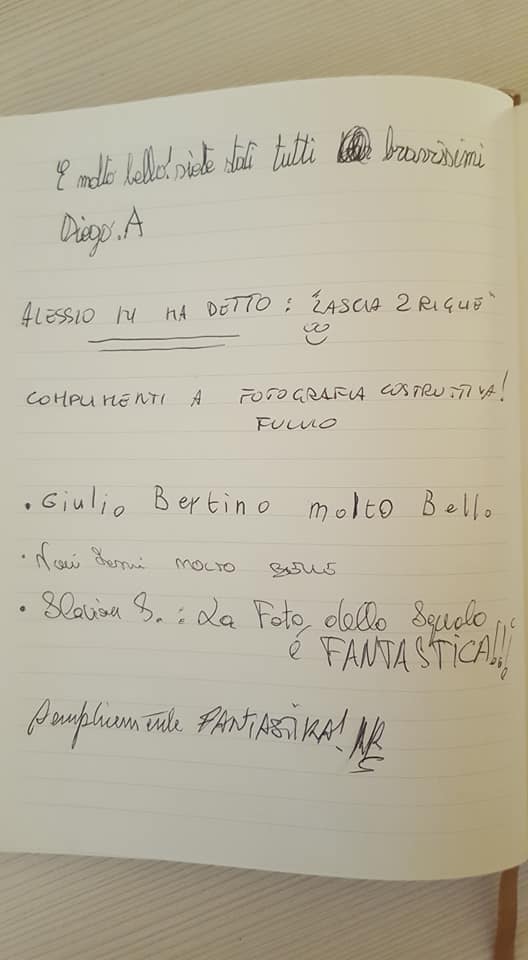 E molto bello! siete stati tutti bravissimi
Diego.A
ALESSIO MI HA DETTO: "LASCIA 2 RIGHE"
COMPLIMENTI A FOTOGRAFIA COSTRUTTIVA!
FULVIO
• Giulio Bertino molto Bello
• MOLTO BELLE
• S.: La Foto dello Squalo
é FANTASTICA!!!
Semplicemente FANTASTIKA!